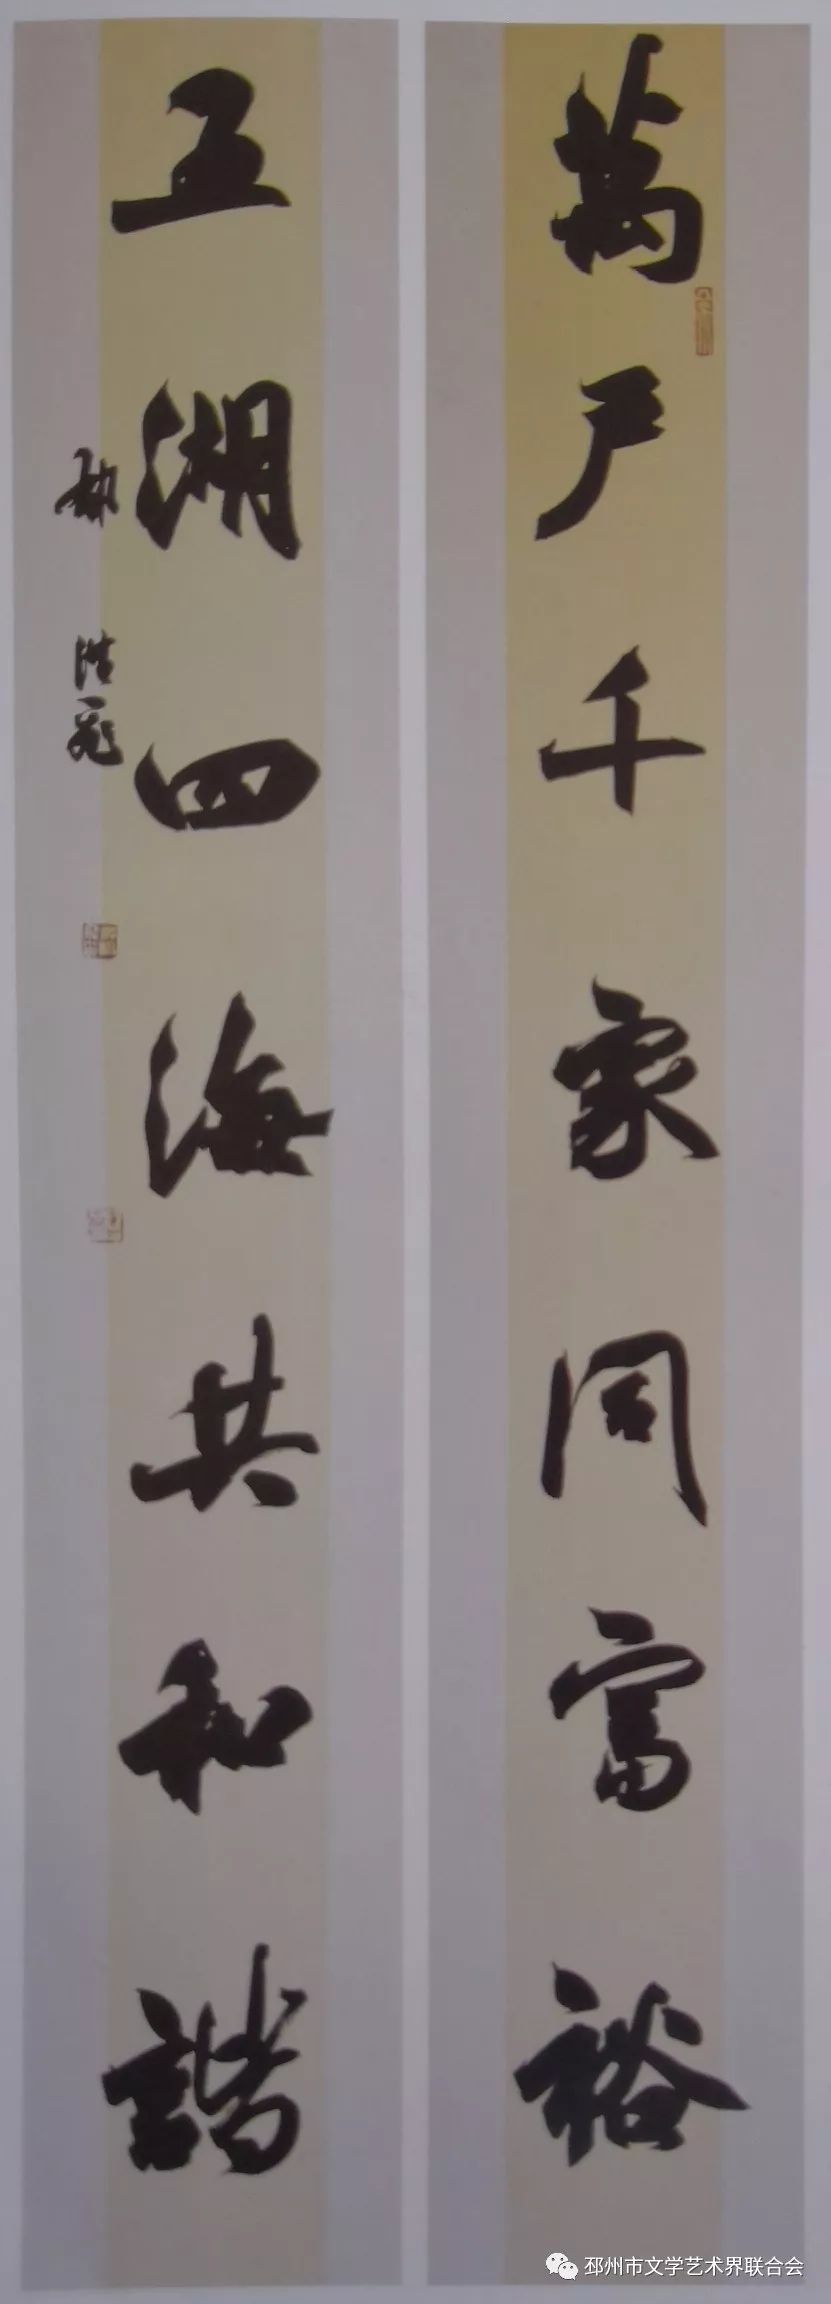 萬戶千家同富裕
五湖四海共和諧
邳州市文学艺术界联合会